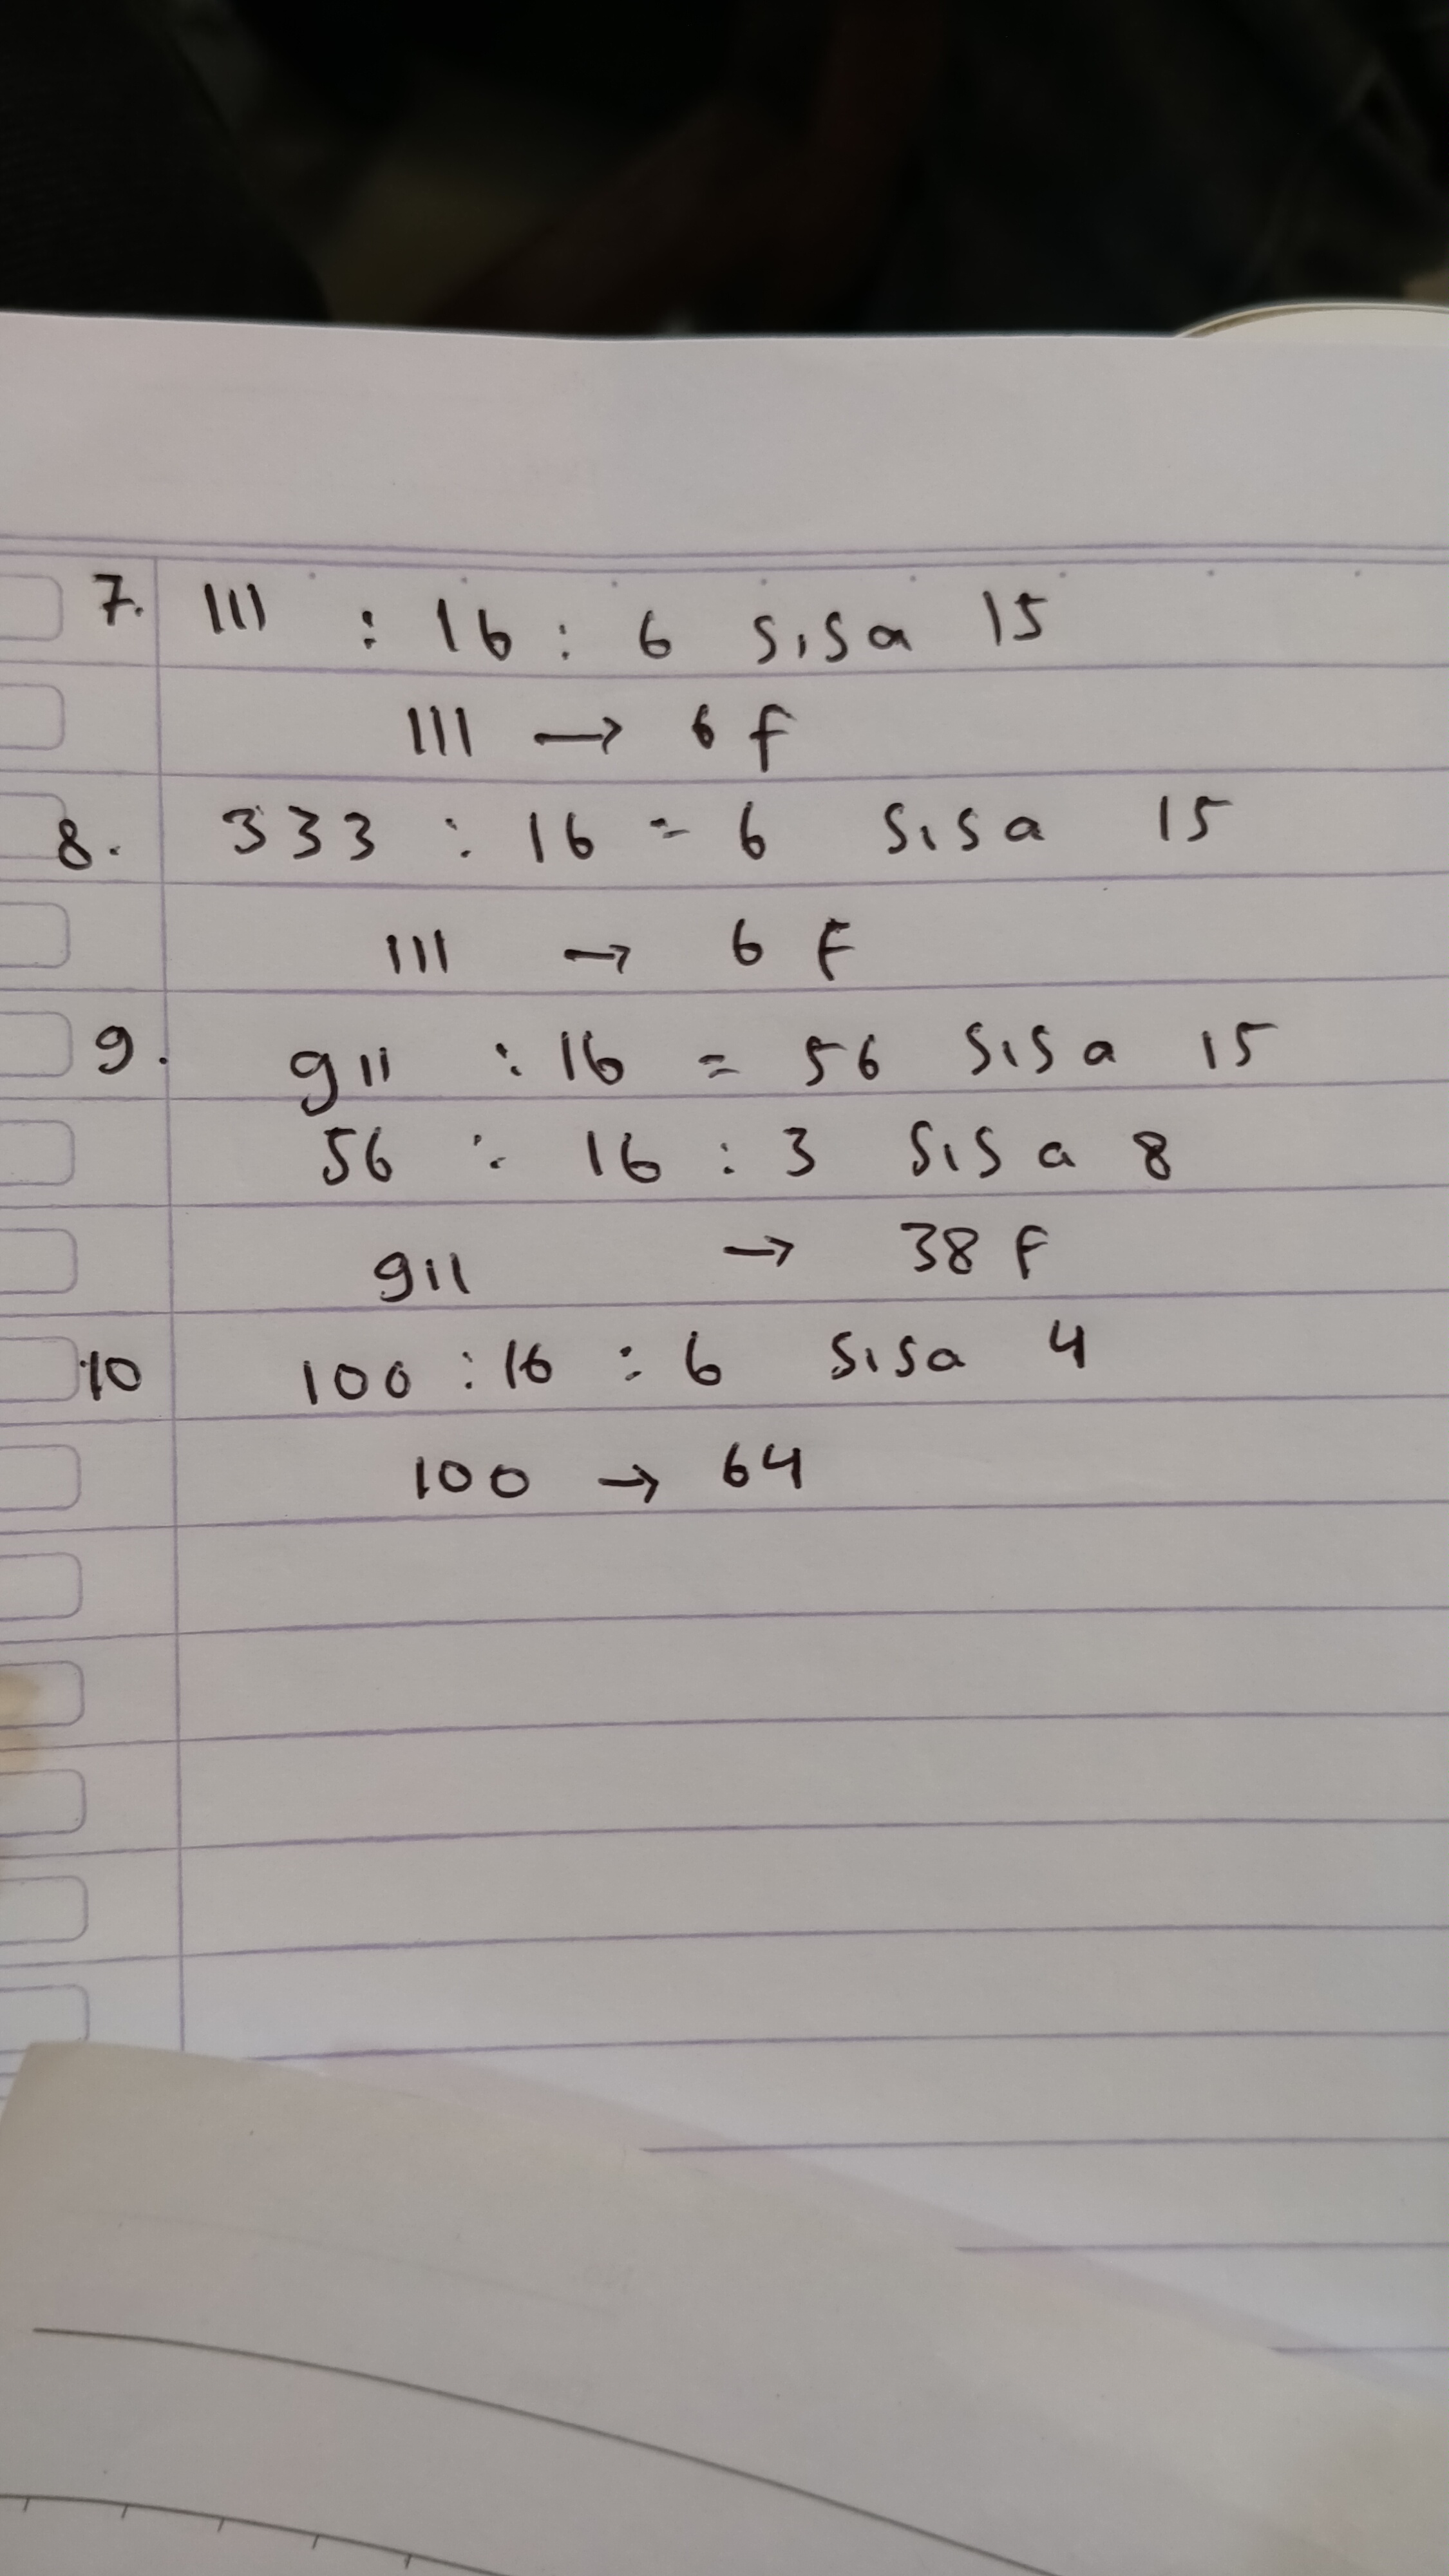 7. 111 : 16 : 6 sisa 15
111 → 6 f
8. 333 : 16 = 6 sisa 15
111 → 6 F
9. 911 : 16 = 56 sisa 15
56 : 16 : 3 sisa 8
911 → 38 F
10 100 : 16 : 6 sisa 4
100 → 64